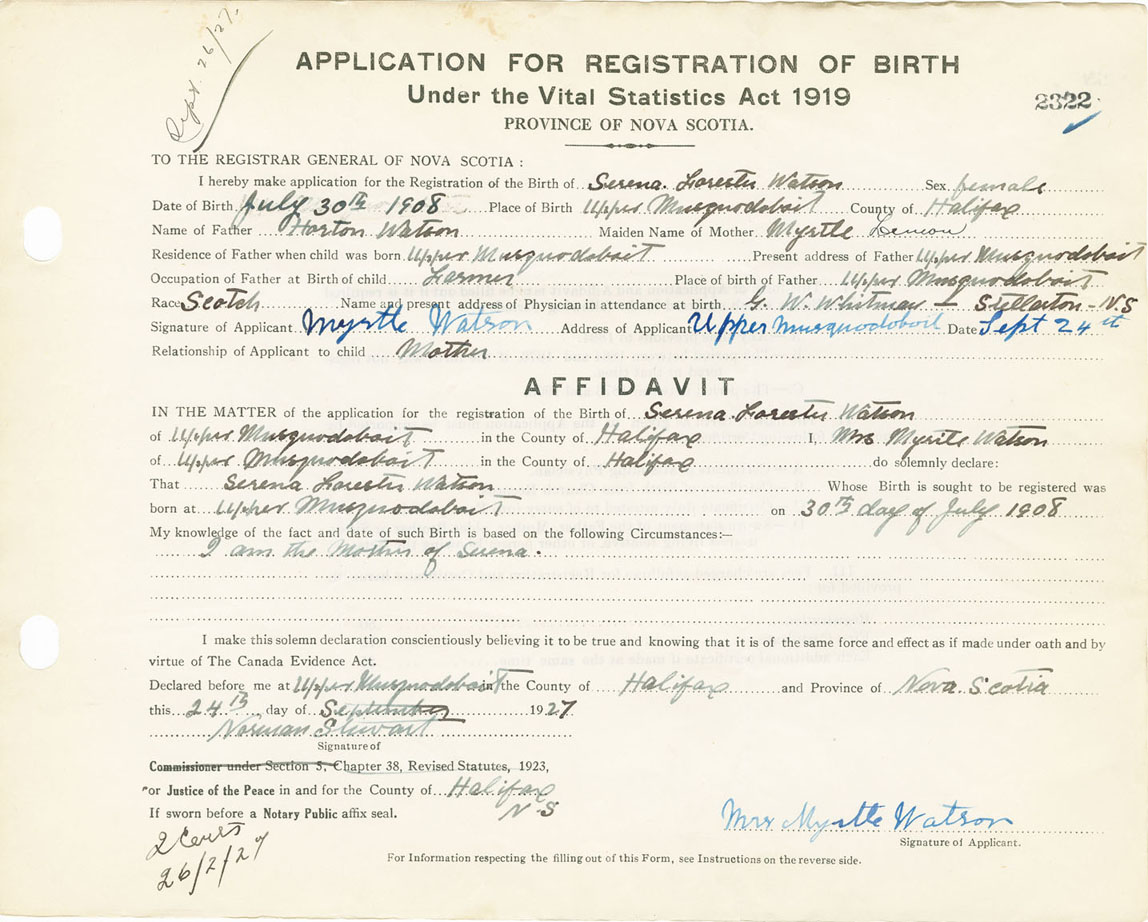 Sept. 26/27.
APPLICATION FOR REGISTRATION OF BIRTH
Under the Vital Statistics Act 1919
2322
PROVINCE OF NOVA SCOTIA.
TO THE REGISTRAR GENERAL OF NOVA SCOTIA :
I hereby make application for the Registration of the Birth of Serena Forester Watson Sex female
Date of Birth July 30th 1908 Place of Birth Upper Musquodoboit County of Halifax
Name of Father Horton Watson Maiden Name of Mother Myrtle
Residence of Father when child was born Upper Musquodoboit Present address of Father Upper Musquodoboit
Occupation of Father at Birth of child Farmer Place of birth of Father Upper Musquodoboit
Race Scotch Name and present address of Physician in attendance at birth G. W. Whitman – Stellarton - N.S
Signature of Applicant Myrtle Watson Address of Applicant Upper Musquodoboit Date Sept 24th
Relationship of Applicant to child Mother
AFFIDAVIT
IN THE MATTER of the application for the registration of the Birth of Serena Forester Watson
of Upper Musquodoboit in the County of Halifax I, Mrs Myrtle Watson
of Upper Musquodoboit in the County of Halifax do solemnly declare:
That Serena Forester Watson Whose Birth is sought to be registered was
born at Upper Musquodoboit on 30th day of July 1908
My knowledge of the fact and date of such Birth is based on the following Circumstances:—
I am the Mother of Serena.
I make this solemn declaration conscientiously believing it to be true and knowing that it is of the same force and effect as if made under oath and by
virtue of The Canada Evidence Act.
Declared before me at Upper Musquodoboit in the County of Halifax and Province of Nova Scotia
this 24th day of September 1927
Norman Stewart
Signature of
Commissioner under Section 5, Chapter 38, Revised Statutes, 1923,
or Justice of the Peace in and for the County of Halifax
If sworn before a Notary Public affix seal. N-S
Mrs Myrtle Watson
Signature of Applicant.
2
26/2/27
For Information respecting the filling out of this Form, see Instructions on the reverse side.